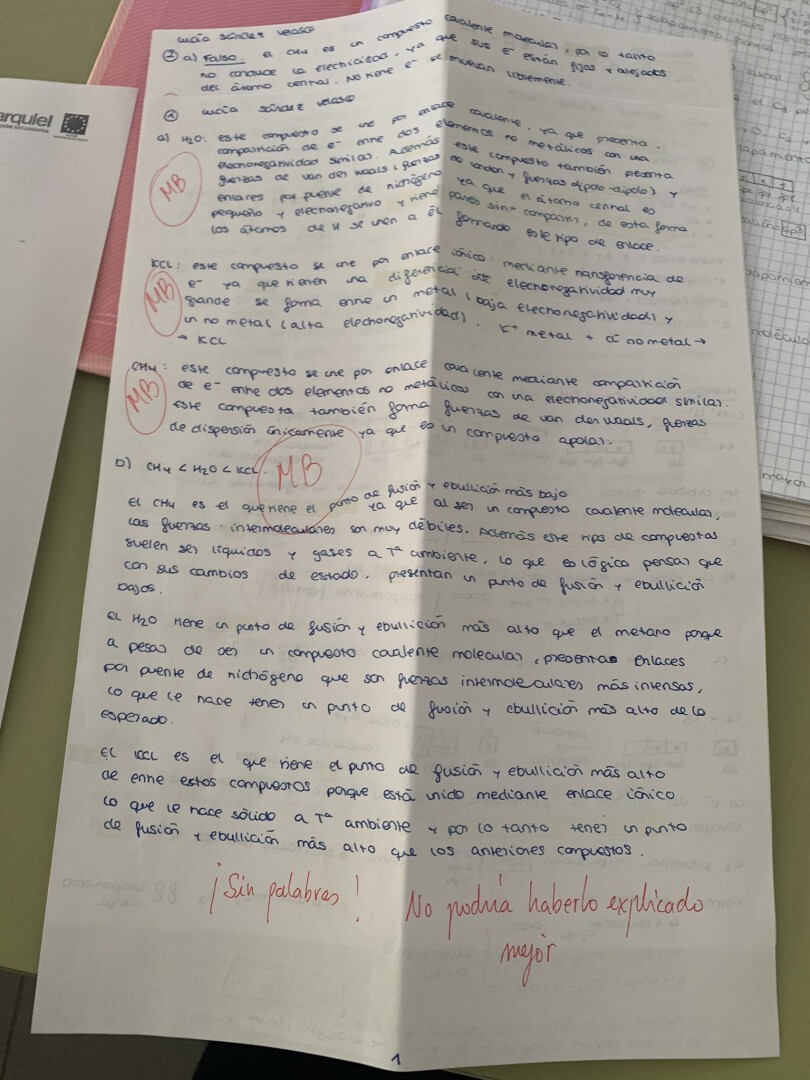 Lucía Sández Velasco
② a) Falso. El CH4 es un compuesto covalente molecular, por lo tanto
no conduce la electricidad, ya que sus e⁻ están fijos y alejados
del átomo central. No tiene e⁻ se muevan libremente.
Lucía Sández Velasco
a) H2O: este compuesto se une por enlace covalente, ya que presenta
compartición de e⁻ entre dos elementos no metálicos con una
electronegatividad similar. Además este compuesto también presenta
fuerzas de van der waals (fuerzas de london y fuerzas dipolo-dipolo) y
enlaces por puente de hidrógeno ya que el átomo central es
pequeño y electronegativo y tiene pares sin compartir, de esta forma
los átomos de H se unen a él formando este tipo de enlace.
MB
KCl: este compuesto se une por enlace iónico mediante transferencia de
e⁻ ya que tienen una diferencia de electronegatividad muy
grande se forma entre un metal (baja electronegatividad) y
un no metal (alta electronegatividad). K⁺ metal + Cl⁻ no metal →
→ KCl
MB
CH4: este compuesto se une por enlace covalente mediante compartición
de e⁻ entre dos elementos no metálicos con una electronegatividad similar.
Este compuesto también forma fuerzas de van der waals, fuerzas
de dispersión únicamente ya que es un compuesto apolar.
MB
b) CH4 < H2O < KCl.
MB
El CH4 es el que tiene el punto de fusión y ebullición más bajo
ya que al ser un compuesto covalente molecular,
las fuerzas intermoleculares son muy débiles. Además este tipo de compuestos
suelen ser líquidos y gases a Tª ambiente, lo que es lógico pensar que
con sus cambios de estado, presentan un punto de fusión y ebullición
bajos.
El H2O tiene un punto de fusión y ebullición más alto que el metano porque
a pesar de ser un compuesto covalente molecular, presenta enlaces
por puente de hidrógeno que son fuerzas intermoleculares más intensas,
lo que le hace tener un punto de fusión y ebullición más alto de lo
esperado.
El KCl es el que tiene el punto de fusión y ebullición más alto
de entre estos compuestos porque está unido mediante enlace iónico
lo que le hace sólido a Tª ambiente y por lo tanto tener un punto
de fusión y ebullición más alto que los anteriores compuestos.
¡Sin palabras! No podría haberlo explicado
mejor
1